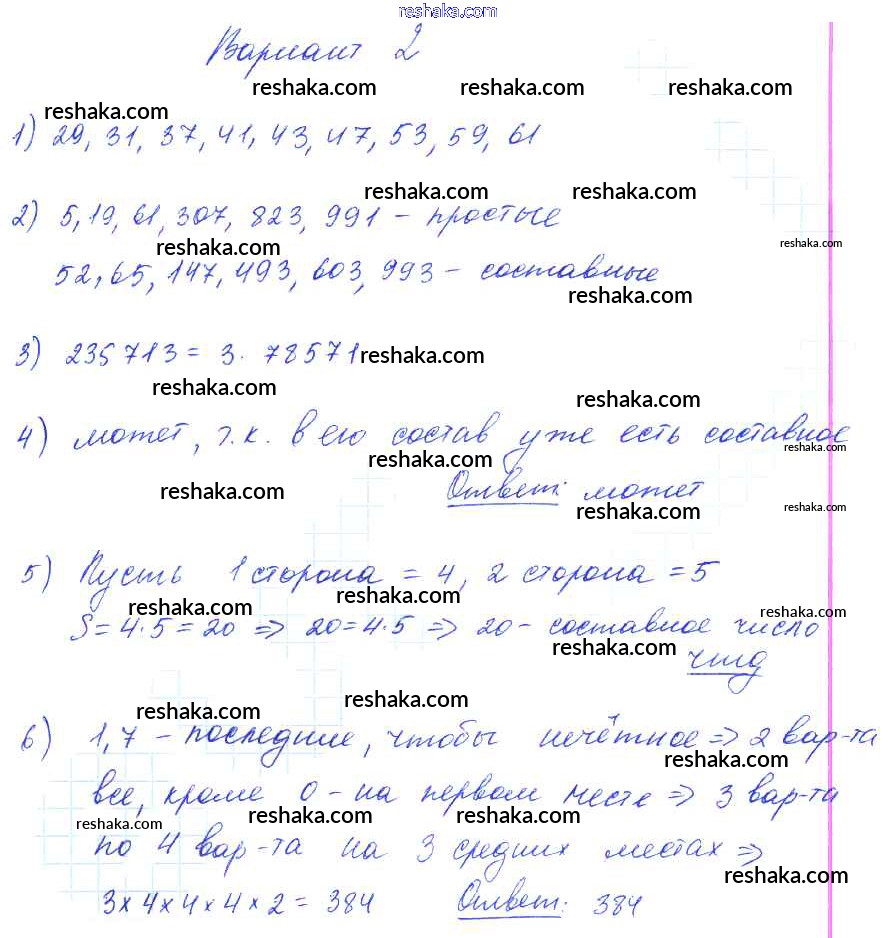 reshaka.com
Вариант 2
reshaka.com reshaka.com reshaka.com
reshaka.com
1) 29, 31, 37, 41, 43, 47, 53, 59, 61
reshaka.com reshaka.com
2) 5, 19, 61, 307, 823, 991 – простые
reshaka.com reshaka.com
52, 65, 147, 493, 603, 993 – составные
reshaka.com
3) 235713 = 3 · 78571 reshaka.com
reshaka.com reshaka.com
4) может, т.к. в его состав уже есть составное
reshaka.com reshaka.com
reshaka.com Ответ: может
reshaka.com reshaka.com
5) Пусть 1 сторона = 4, 2 сторона = 5
reshaka.com reshaka.com reshaka.com
S = 4·5 = 20 => 20 = 4·5 => 20 - составное число
reshaka.com
чтд
reshaka.com reshaka.com
6) 1,7 – последние, чтобы нечётное => 2 вар-та
reshaka.com
все, кроме 0 – на первом месте => 3 вар-та
reshaka.com reshaka.com reshaka.com
по 4 вар-та на 3 средних местах =>
reshaka.com
3×4×4×4×2 = 384 Ответ: 384